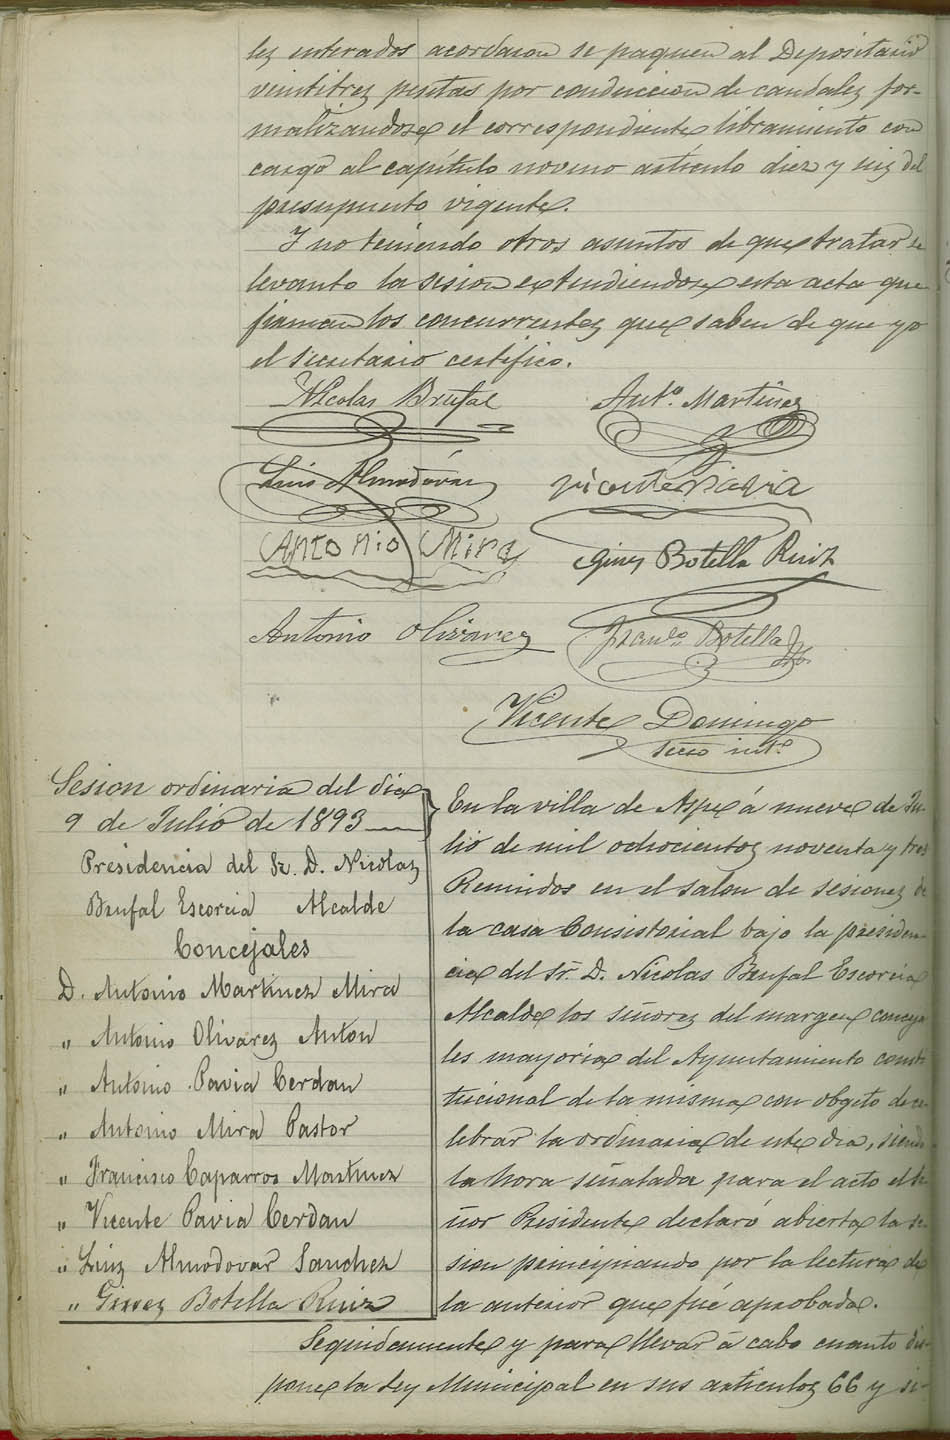 les enterados acordaron se paguen al Depositario
veintitres pesetas por conduccion de caudales for-
malizandose el correspondiente libramiento con
cargo al capítulo noveno artículo diez y seis del
presupuesto vigente.
Y no teniendo otros asuntos de que tratar se
levanto la sesion extendiendose esta acta que
firman los concurrentes que saben de que yo
el secretario certifico.
Nicolas Brufal
Antº. Martínez
Luis Almodóvar
Vicente Pavia
Antonio Mira
Gines Botella Ruiz
Antonio Olivares
Franco Botella
Vicente Domingo
Secro intº
Sesion ordinaria del dia
9 de Julio de 1893
Presidencia del Sr. D. Nicolas
Brufal Escorcia Alcalde
Concejales
D. Antonio Martinez Mira
" Antonio Olivares Anton
" Antonio Pavia Cerdan
" Antonio Mira Pastor
" Francisco Caparros Martinez
" Vicente Pavia Cerdan
" Luis Almodovar Sanchez
" Gines Botella Ruiz
En la villa de Aspe á nueve de Ju-
lio de mil ochocientos noventa y tres
Reunidos en el salon de sesiones de
la casa Consistorial bajo la presiden-
cia del Sr. D. Nicolas Brufal Escorcia
Alcalde los señores del margen conceja
les mayoria del Ayuntamiento consti
tucional de la misma con obgeto de ce-
lebrar la ordinaria de este dia, siendo
la hora señalada para el acto el Se-
ñor Presidente declaró abierta la se-
sion principiando por la lectura de
la anterior que fué aprobada.
Seguidamente y para llevar á cabo cuanto dis-
pone la Ley Municipal en sus articulos 66 y si-